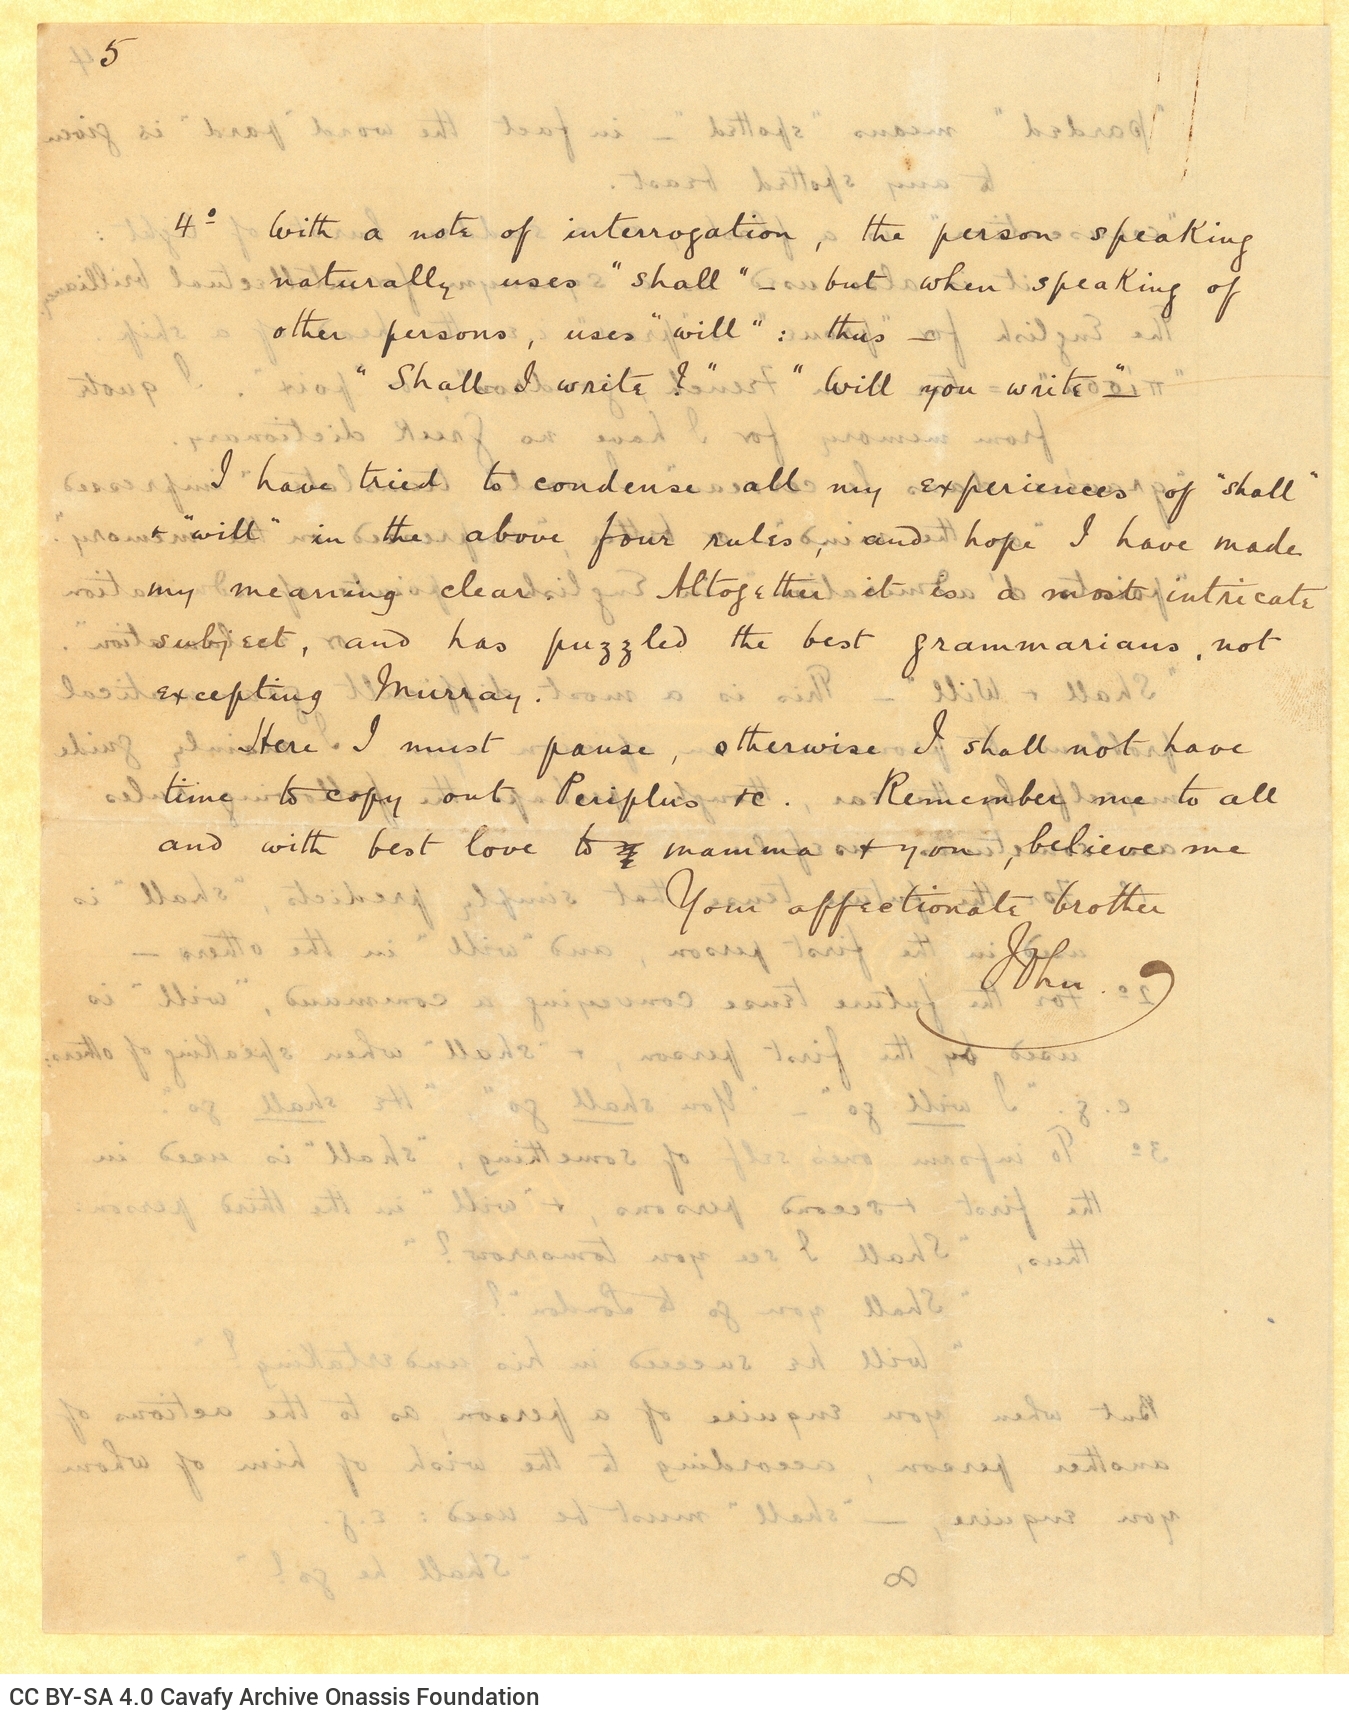 5
4º With a note of interrogation, the person speaking
naturally uses "shall" – but when speaking of
other persons, uses "will": thus –
"Shall I write?" "Will you write"
I have tried to condense all my experiences of "shall"
+ "will" in the above four rules, and hope I have made
my meaning clear. Altogether it is a most intricate
subject, and has puzzled the best grammarians, not
excepting Murray.
Here I must pause, otherwise I shall not have
time to copy out Periplus &c. Remember me to all
and with best love to mamma + you, believe me
Your affectionate brother
John.
8
CC BY-SA 4.0 Cavafy Archive Onassis Foundation